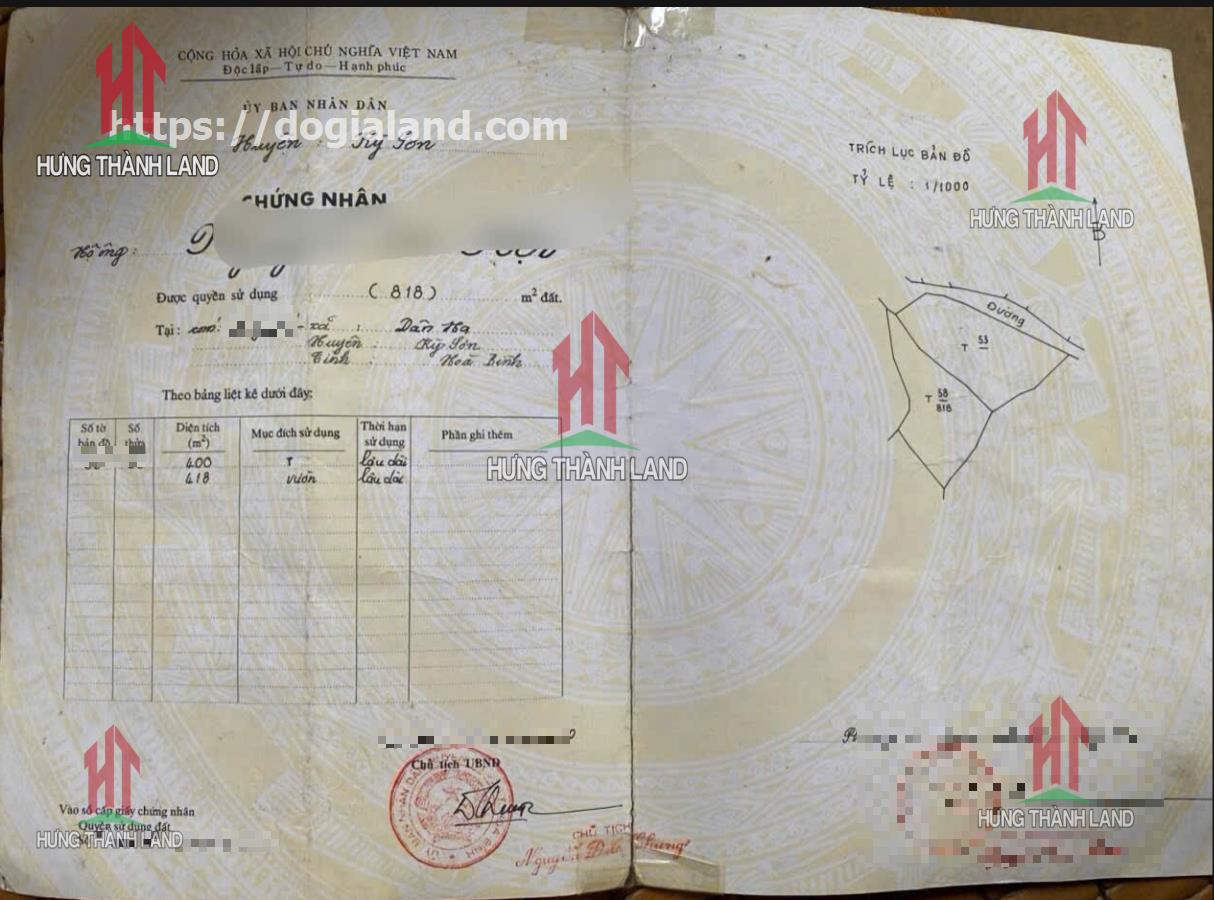 CỘNG HÒA XÃ HỘI CHỦ NGHĨA VIỆT NAM
Độc lập — Tự do — Hạnh phúc
ỦY BAN NHÂN DÂN
https://dogialand.com
Huyện : Kỳ Sơn
HƯNG THÀNH LAND
CHỨNG NHÂN
Hộ ông:
Được quyền sử dụng (818) m² đất.
Tại: - xã : Dân Hạ
Huyện : Kỳ Sơn
Tỉnh : Hoà Bình
Theo bảng liệt kê dưới đây:
Số tờ bản đồ Số thửa Diện tích (m²) Mục đích sử dụng Thời hạn sử dụng Phần ghi thêm
400 T lâu dài
418 vườn lâu dài
HƯNG THÀNH LAND
Chủ tịch UBND
Vào sổ cấp giấy chứng nhân
Quyền sử dụng đất
HƯNG THÀNH LAND
CHỦ TỊCH
TRÍCH LỤC BẢN ĐỒ
TỶ LỆ : 1/1000
HƯNG THÀNH LAND
B
Đường
T 53
T 58
818
HƯNG THÀNH LAND